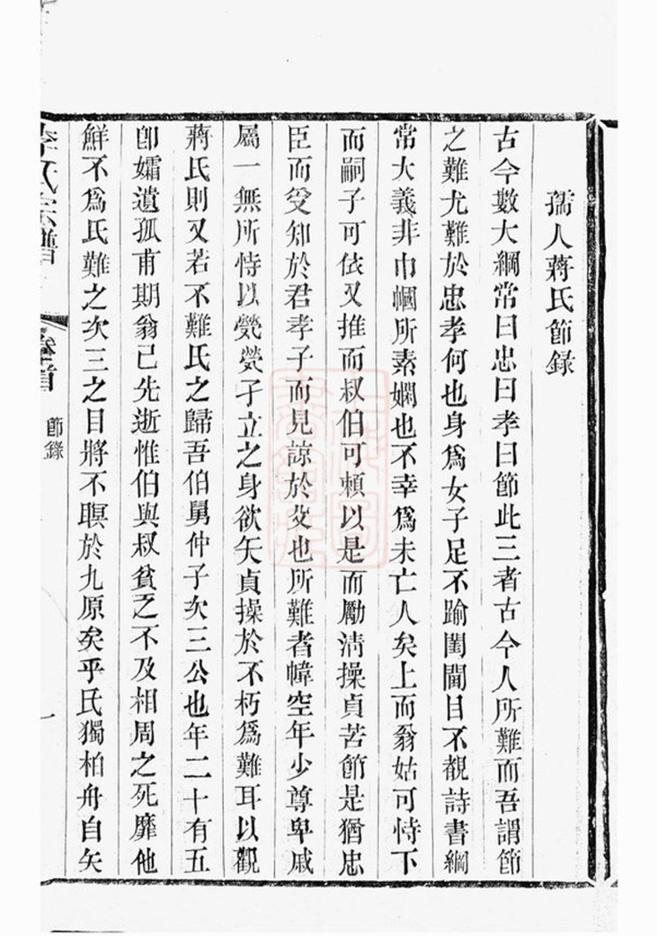 孺人蔣氏節錄
古今數大綱常曰忠曰孝曰節此三者古今人所難而吾謂節
之難尤難於忠孝何也身爲女子足不踰閨閫目不覩詩書綱
常大義非巾幗所素嫻也不幸爲未亡人矣上而翁姑可恃下
而嗣子可依又推而叔伯可賴以是而勵清操貞苦節是猶忠
臣而受知於君孝子而見諒於父也所難者幃空年少尊卑戚
屬一無所恃以煢煢孑立之身欲矢貞操於不朽爲難耳以觀
蔣氏則又若不難氏之歸吾伯舅仲子次三公也年二十有五
卽孀遺孤甫期翁已先逝惟伯與叔貧乏不及相周之死靡他
鮮不爲氏難之次三之目將不瞑於九原矣乎氏獨柏舟自矢
李氏宗譜
卷首
節錄
一